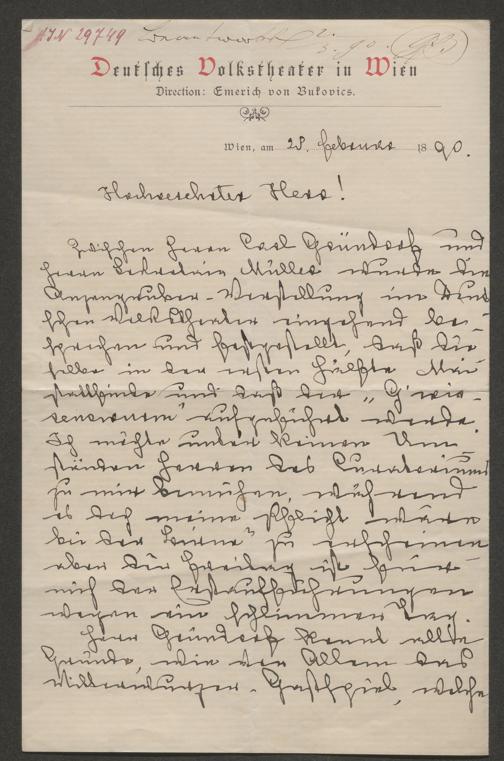 I.N 29749 Beantwortet 2. 3. 90.
Deutsches Volkstheater in Wien
Direction: Emerich von Bukovics.
Wien, am 28. Februar 1890.
Hochgeehrter Herr!
Zwischen Herrn Carl Gründorf und
Herrn Sekretair Müller wurde die
Anzengruber-Vorstellung im Deut-
schen Volkstheater eingehend be-
sprochen und festgestellt, daß die-
selbe in der ersten Hälfte Mai
stattfinde und daß der „G'wis-
senswurm" aufgeführt werde.
Ich möchte unter keinen Um
ständen Herren des Curatoriums
zu mir bemühen, während
es doch meine Pflicht wäre
bei der zu erscheinen
aber der Freitag ist für
mich der Erstaufführungen
wegen ein schlimmer Tag.
Herr Gründorf kennt alle die
Gründe, wie vor Allem das
Mitterwurzer-Gastspiel, welche